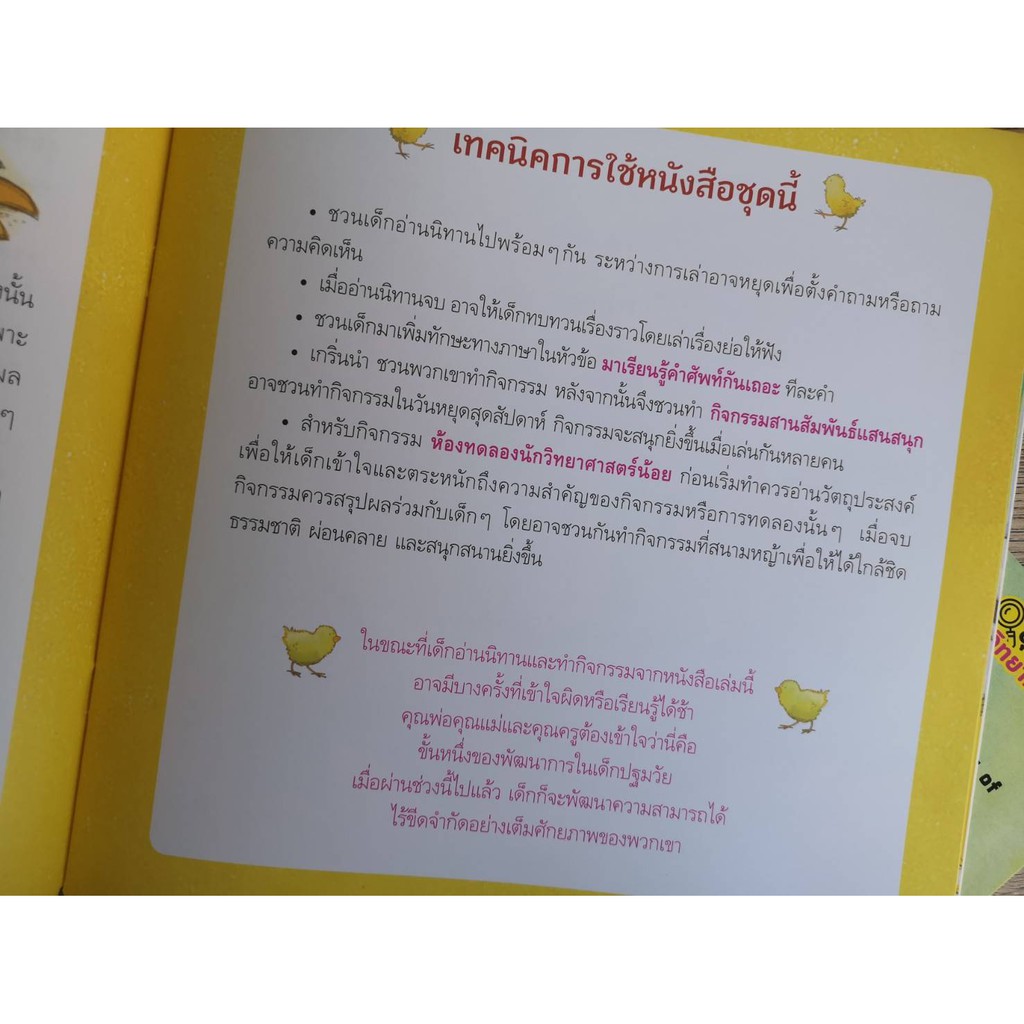 เทคนิคการใช้หนังสือชุดนี้
• ชวนเด็กอ่านนิทานไปพร้อมๆกัน ระหว่างการเล่าอาจหยุดเพื่อตั้งคำถามหรือถาม
ความคิดเห็น
• เมื่ออ่านนิทานจบ อาจให้เด็กทบทวนเรื่องราวโดยเล่าเรื่องย่อให้ฟัง
• ชวนเด็กมาเพิ่มทักษะทางภาษาในหัวข้อ มาเรียนรู้คำศัพท์กันเถอะ ทีละคำ
• เกริ่นนำ ชวนพวกเขาทำกิจกรรม หลังจากนั้นจึงชวนทำ กิจกรรมสานสัมพันธ์แสนสนุก
อาจชวนทำกิจกรรมในวันหยุดสุดสัปดาห์ กิจกรรมจะสนุกยิ่งขึ้นเมื่อเล่นกันหลายคน
• สำหรับกิจกรรม ห้องทดลองนักวิทยาศาสตร์น้อย ก่อนเริ่มทำควรอ่านวัตถุประสงค์
เพื่อให้เด็กเข้าใจและตระหนักถึงความสำคัญของกิจกรรมหรือการทดลองนั้นๆ เมื่อจบ
กิจกรรมควรสรุปผลร่วมกับเด็กๆ โดยอาจชวนกันทำกิจกรรมที่สนามหญ้าเพื่อให้ได้ใกล้ชิด
ธรรมชาติ ผ่อนคลาย และสนุกสนานยิ่งขึ้น
ในขณะที่เด็กอ่านนิทานและทำกิจกรรมจากหนังสือเล่มนี้
อาจมีบางครั้งที่เข้าใจผิดหรือเรียนรู้ได้ช้า
คุณพ่อคุณแม่และคุณครูต้องเข้าใจว่านี่คือ
ขั้นหนึ่งของพัฒนาการในเด็กปฐมวัย
เมื่อผ่านช่วงนี้ไปแล้ว เด็กก็จะพัฒนาความสามารถได้
ไร้ขีดจำกัดอย่างเต็มศักยภาพของพวกเขา
of